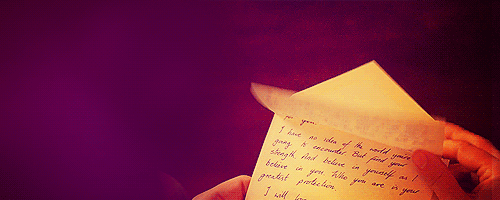 you.
I have no idea of the world you're
going to encounter. But find your
strength. And believe in yourself as I
believe in you. Who you are is your
greatest protection.
I will